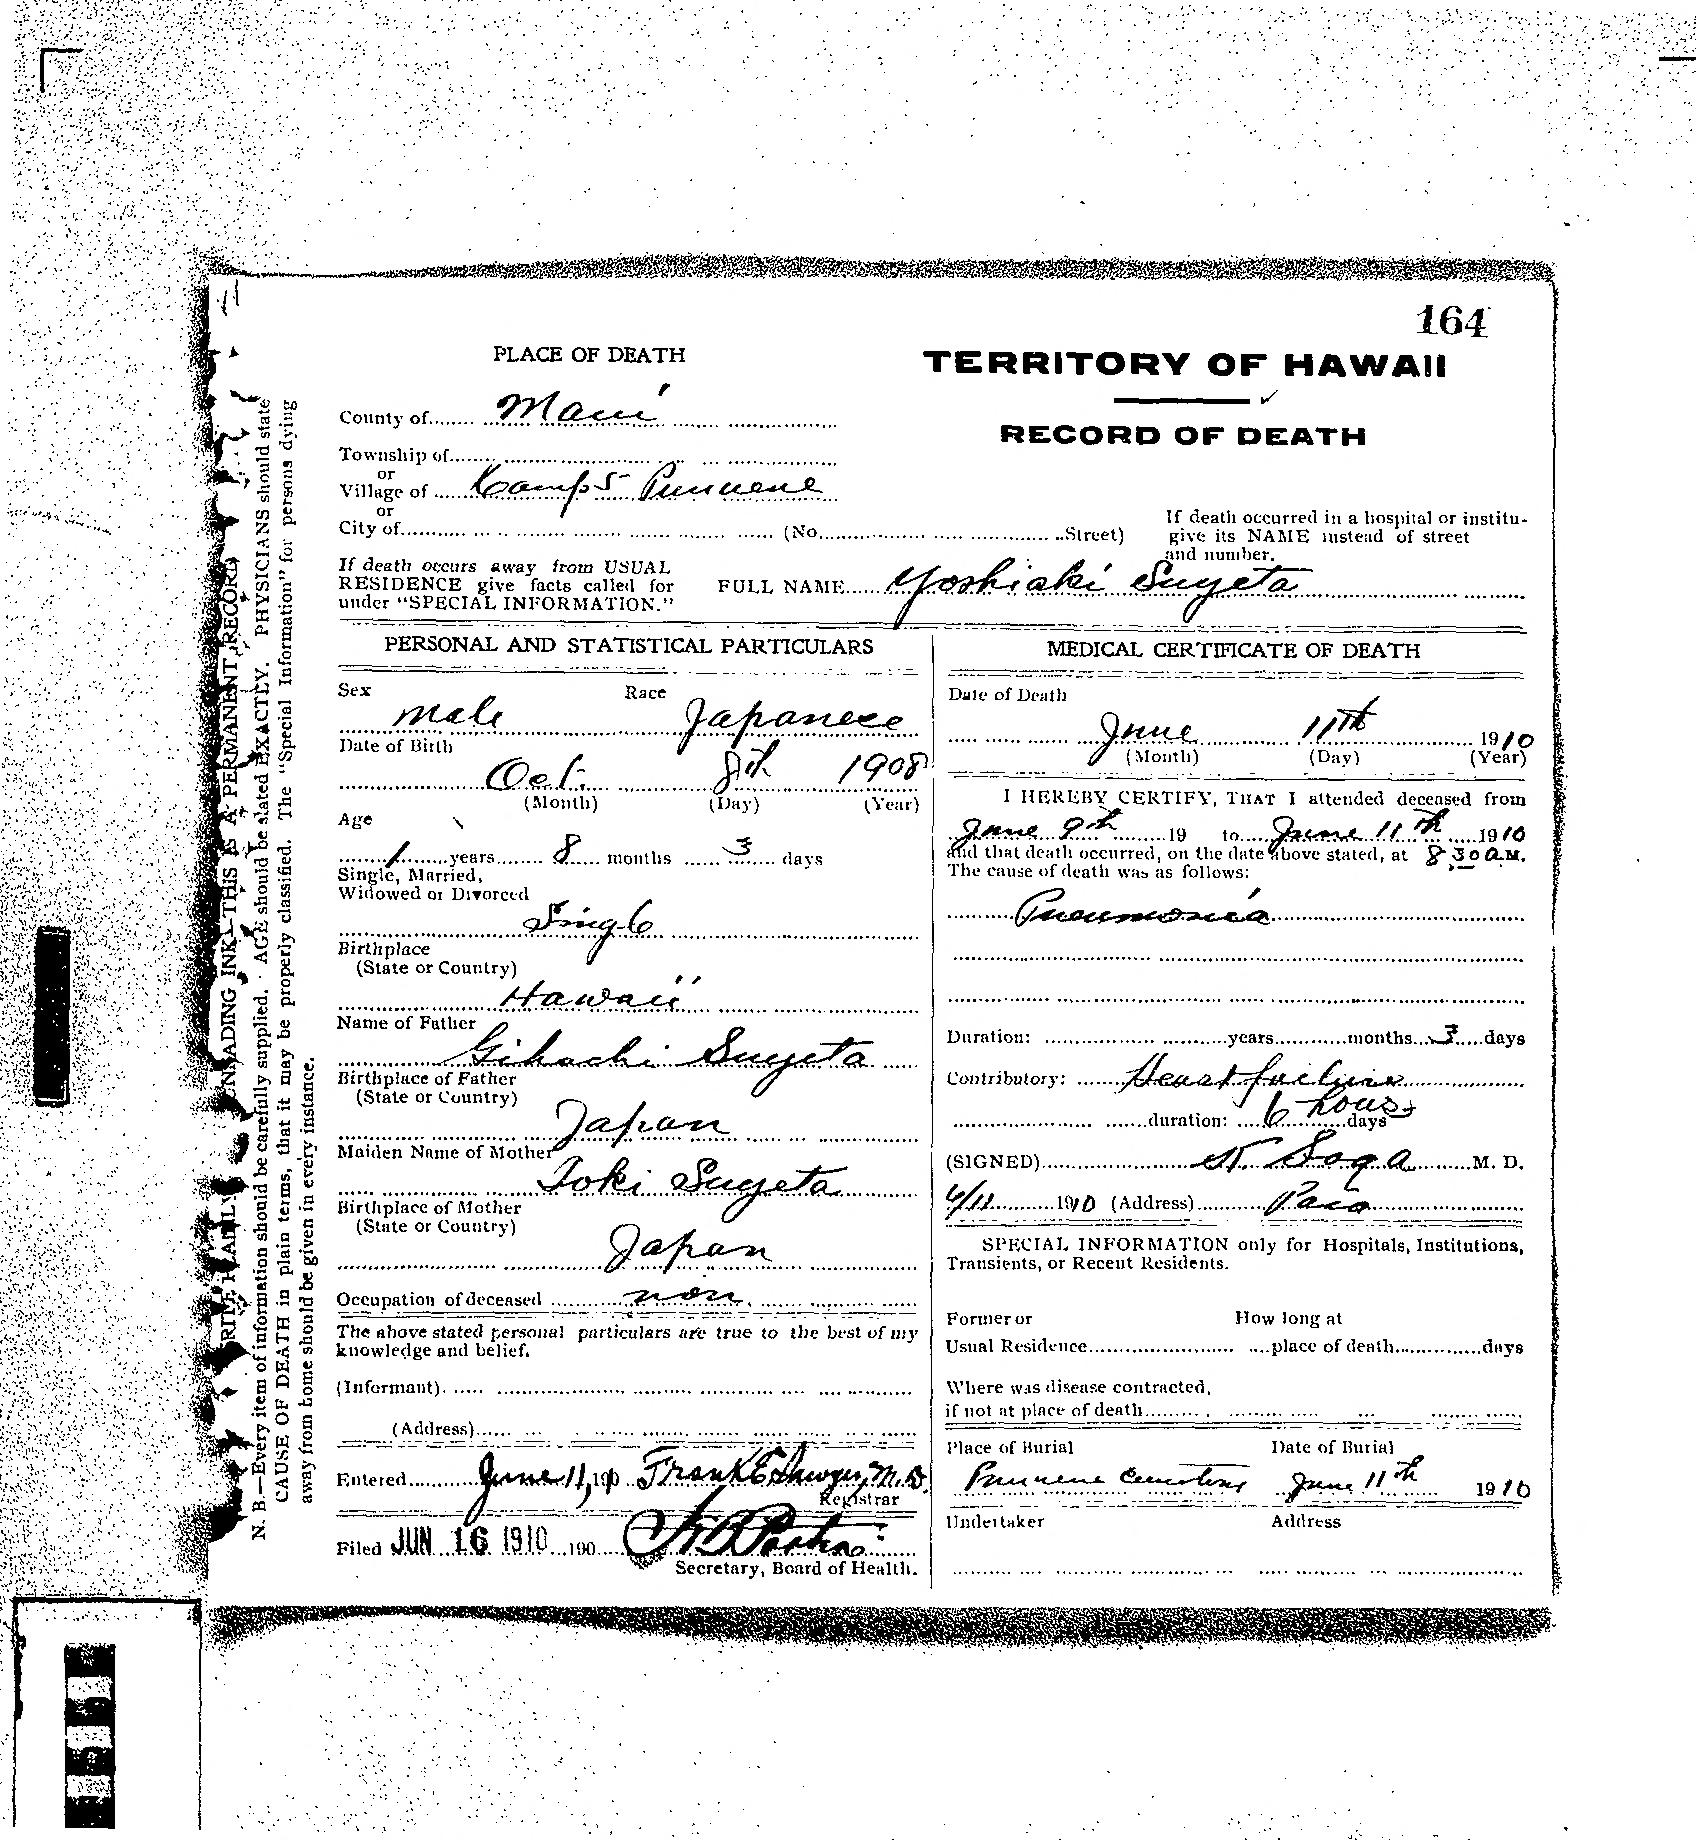 164
PLACE OF DEATH
TERRITORY OF HAWAII
RECORD OF DEATH
County of Maui
Township of
or
Village of Kamp 5 Puunene
or
City of (No. Street)
If death occurred in a hospital or institu-
give its NAME instead of street
and number.
If death occurs away from USUAL
RESIDENCE give facts called for
under "SPECIAL INFORMATION."
FULL NAME Yoshiaki Suyeta
PERSONAL AND STATISTICAL PARTICULARS
Sex Race
Male Japanese
Date of Birth
Oct. 8th 1908
(Month) (Day) (Year)
Age
1 years 8 months 3 days
Single, Married,
Widowed or Divorced
Single
Birthplace
(State or Country)
Hawaii
Name of Father
Gihachi Suyeta
Birthplace of Father
(State or Country)
Japan
Maiden Name of Mother
Toki Suyeta
Birthplace of Mother
(State or Country)
Japan
Occupation of deceased non
The above stated personal particulars are true to the best of my
knowledge and belief.
(Informant)
(Address)
Entered June 11, 190 Frank E Sawyer, M.D.
Registrar
Filed JUN 16 1910 190
Secretary, Board of Health.
MEDICAL CERTIFICATE OF DEATH
Date of Death
June 11th 1910
(Month) (Day) (Year)
I HEREBY CERTIFY, THAT I attended deceased from
June 9th 19 to June 11th 1910
and that death occurred, on the date above stated, at 8 30 A.M.
The cause of death was as follows:
Pneumonia
Duration: years months 3 days
Contributory: Heart failure
duration: 6 hours days
(SIGNED) K. Soga M. D.
6/11 1910 (Address) Paia
SPECIAL INFORMATION only for Hospitals, Institutions,
Transients, or Recent Residents.
Former or How long at
Usual Residence place of death days
Where was disease contracted,
if not at place of death
Place of Burial Date of Burial
Puunene Cemetery June 11th 1910
Undertaker Address
UNFADING INK—THIS IS A PERMANENT RECORD
N. B.—Every item of information should be carefully supplied. AGE should be stated EXACTLY. PHYSICIANS should state
CAUSE OF DEATH in plain terms, that it may be properly classified. The "Special Information" for persons dying
away from home should be given in every instance.